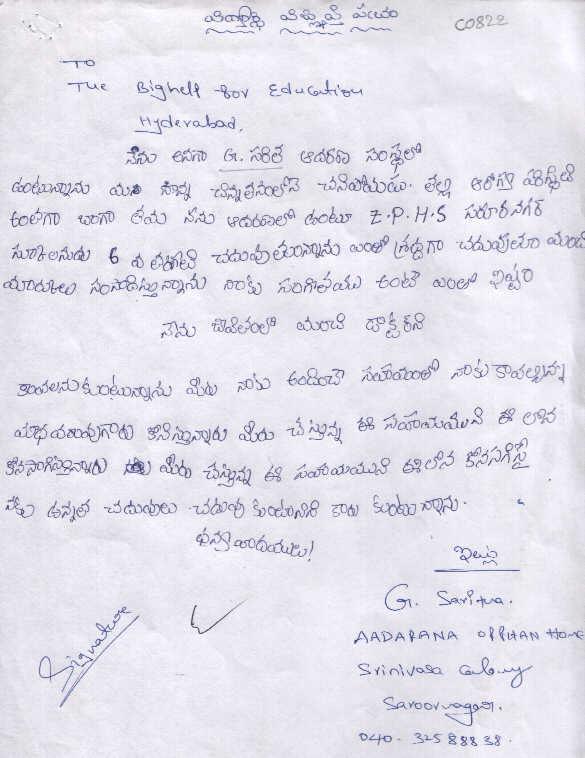 విద్యార్థి విజ్ఞప్తి పత్రం
C0822
To
The Bighelp for Education
Hyderabad,
నేను అనగా G. సరిత ఆదరణ సంస్థలో
ఉంటున్నాను మా నాన్న చిన్నతనంలోనే చనిపోయాడు. తల్లి ఆరోగ్య పరిస్థితి
అంతగా బాగా లేదు నేను ఆదరణలో ఉంటూ Z.P.H.S సరూర్ నగర్
స్కూలునందు 6 వ తరగతి చదువుతున్నాను ఎంతో శ్రద్ధగా చదువుతూ మంచి
మార్కులు సంపాదిస్తున్నాను నాకు సంగీతము అంటే ఎంతో ఇష్టం
నేను జీవితంలో మంచి డాక్టర్ని
కావలనుకుంటున్నాను మీరు నాకు అందించే సహాయంతో నాకు కావల్సిన
మాధవరావుగారు కొనిస్తున్నారు మీరు చేస్తున్న ఈ సహాయమునే ఈ లాన
కొనసాగిస్తున్నారు మీరు చేస్తున్న ఈ సహాయమునే ఈలాన కొనసాగిస్తే
నేను ఉన్నత చదువులు చదువుకుంటానని కోరుకుంటున్నాను.
ధన్యవాదములు!
ఇట్లు
G. Saritha.
AADARANA ORPHAN Home
Srinivasa Colony
Saroornagar.
040-32588838.
Signature